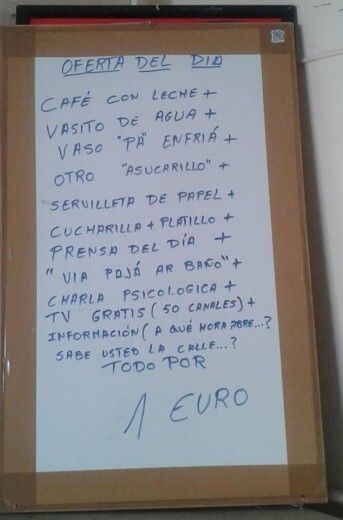 OFERTA DEL DIA
CAFÉ CON LECHE +
VASITO DE AGUA +
VASO "PA" ENFRIÁ +
OTRO "ASUCARILLO" +
SERVILLETA DE PAPEL +
CUCHARILLA + PLATILLO +
PRENSA DEL DÍA +
"VIA PAJÁ AR BAÑO" +
CHARLA PSICOLOGICA +
TV GRATIS (50 CANALES) +
INFORMACIÓN (A QUÉ HORA ABRE...?
SABE USTED LA CALLE...?
TODO POR
1 EURO